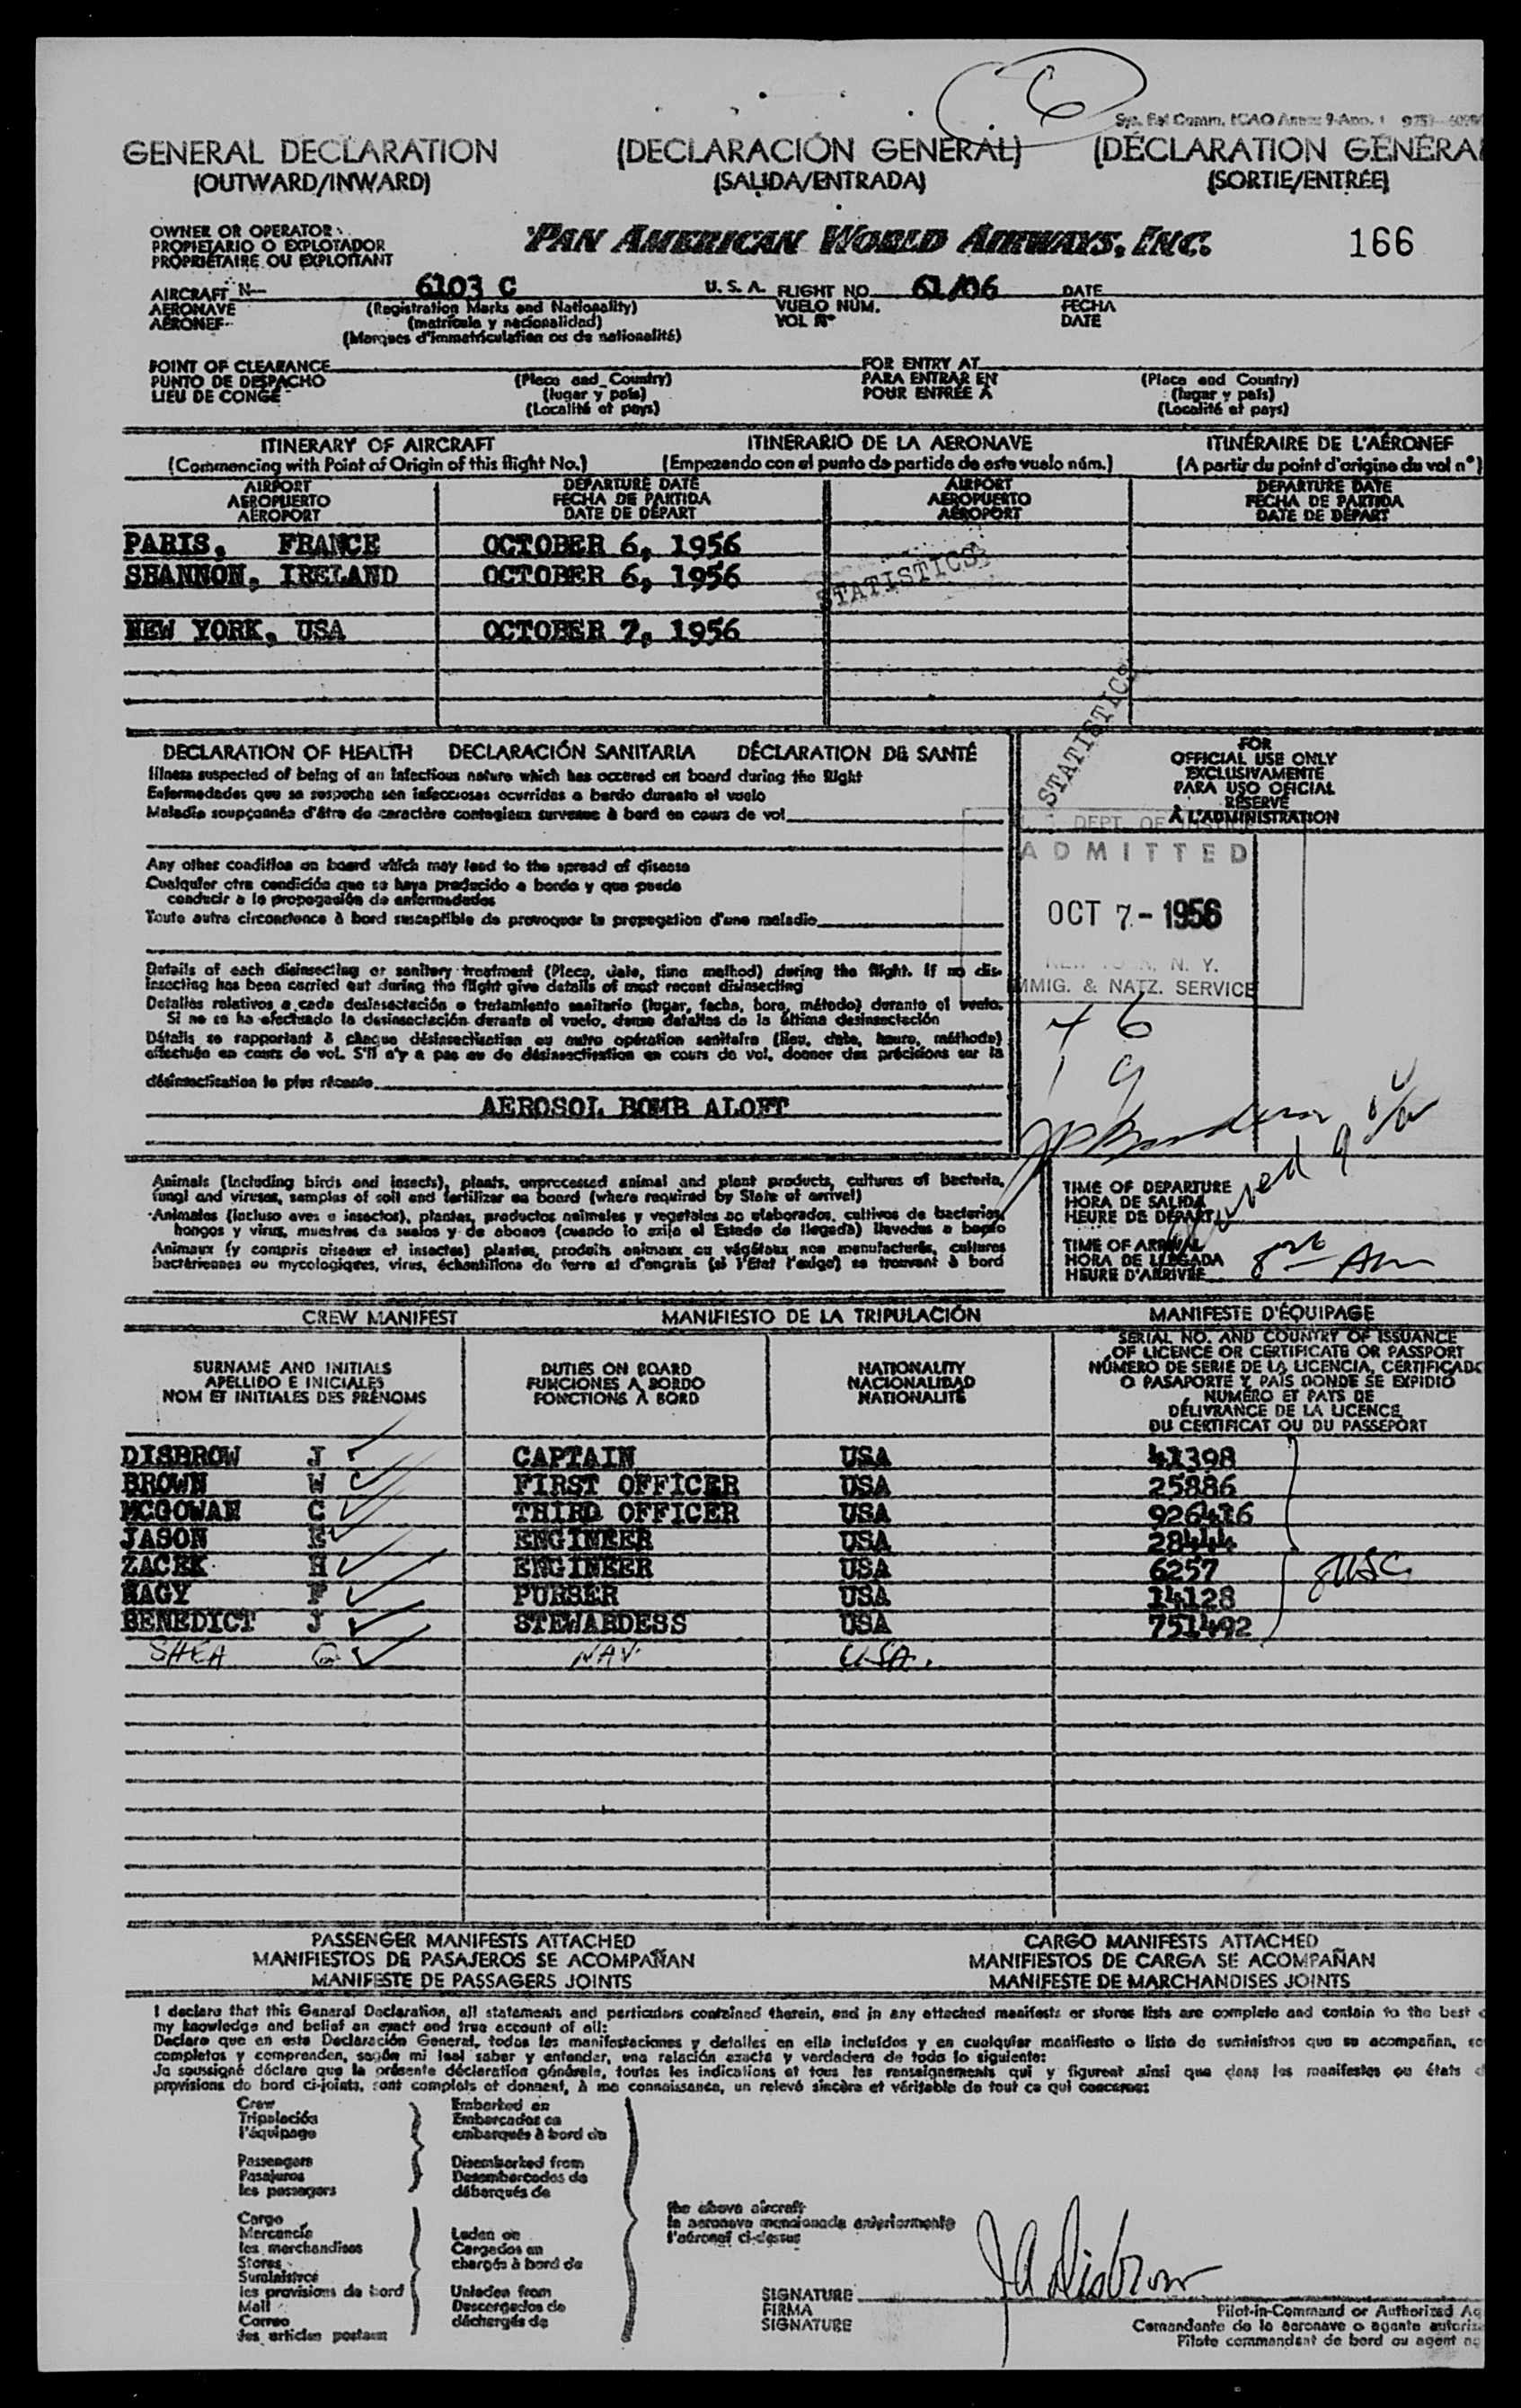 Sys. Rel Comm. ICAO Annex 9-App. 1
GENERAL DECLARATION (DECLARACIÓN GENERAL) (DÉCLARATION GÉNÉRA
(OUTWARD/INWARD) (SALIDA/ENTRADA) (SORTIE/ENTRÉE)
OWNER OR OPERATOR
PROPIETARIO O EXPLOTADOR
PROPRIÉTAIRE OU EXPLOITANT
PAN AMERICAN WORLD AIRWAYS, INC. 166
AIRCRAFT N- 6103 C U. S. A. FLIGHT NO. 61/06 DATE
AERONAVE (Registration Marks and Nationality) VUELO NUM. FECHA
AÉRONEF (matrícula y nacionalidad) VOL Nº DATE
(Marques d'immatriculation ou de nationalité)
POINT OF CLEARANCE FOR ENTRY AT
PUNTO DE DESPACHO (Place and Country) PARA ENTRAR EN (Place and Country)
LIEU DE CONGÉ (lugar y país) POUR ENTRÉE À (lugar y país)
(Localité et pays) (Localité et pays)
ITINERARY OF AIRCRAFT ITINERARIO DE LA AERONAVE ITINÉRAIRE DE L'AÉRONEF
(Commencing with Point of Origin of this flight No.) (Empezando con el punto de partida de este vuelo núm.) (A partir du point d'origine du vol nº)
AIRPORT DEPARTURE DATE AIRPORT DEPARTURE DATE
AEROPUERTO FECHA DE PARTIDA AEROPUERTO FECHA DE PARTIDA
AÉROPORT DATE DE DÉPART AÉROPORT DATE DE DÉPART
PARIS, FRANCE OCTOBER 6, 1956
SHANNON, IRELAND OCTOBER 6, 1956
STATISTICS
NEW YORK, USA OCTOBER 7, 1956
STATISTICS
DECLARATION OF HEALTH DECLARACIÓN SANITARIA DÉCLARATION DE SANTÉ
Illness suspected of being of an infectious nature which has occured on board during the flight
Enfermedades que se sospecha sen infecciosas ocurridas a bordo durante el vuelo
Maladie soupçonnée d'être de caractère contagieux survenue à bord en cours de vol
FOR
OFFICIAL USE ONLY
EXCLUSIVAMENTE
PARA USO OFICIAL
RÉSERVÉ
À L'ADMINISTRATION
DEPT. OF
ADMITTED
OCT 7 - 1956
N. Y.
IMMIG. & NATZ. SERVICE
Any other condition on board which may lead to the spread of disease
Cualquier otra condición que se haya producido a bordo y que puede
conducir a la propagación de enfermedades
Toute autre circonstance à bord susceptible de provoquer la propagation d'une maladie
Details of each disinsecting or sanitary treatment (Place, date, time method) during the flight. If no dis-
insecting has been carried out during the flight give details of most recent disinsecting
Detalles relativos a cada desinsectación o tratamiento sanitario (lugar, fecha, hora, método) durante el vuelo.
Si no se ha efectuado la desinsectación durante el vuelo, dense detalles de la última desinsectación
Détails se rapportant à chaque désinsectisation ou autre opération sanitaire (lieu, date, heure, méthode)
effectuée en cours de vol. S'il n'y a pas eu de désinsectisation en cours de vol, donner des précisions sur la
désinsectisation la plus récente
AEROSOL BOMB ALOFT
Animals (including birds and insects), plants, unprocessed animal and plant products, cultures of bacteria,
fungi and viruses, samples of soil and fertilizer on board (where required by State of arrival)
Animales (incluso aves e insectos), plantas, productos animales y vegetales no elaborados, cultivos de bacterias,
hongos y virus, muestras de suelos y de abonos (cuando lo exija el Estado de llegada) llevados a bordo
Animaux (y compris oiseaux et insectes) plantes, produits animaux ou végétaux non manufacturés, cultures
bactériennes ou mycologiques, virus, échantillons de terre et d'engrais (si l'État l'exige) se trouvant à bord
TIME OF DEPARTURE
HORA DE SALIDA
HEURE DE DÉPART
TIME OF ARRIVAL
HORA DE LLEGADA
HEURE D'ARRIVÉE
CREW MANIFEST MANIFIESTO DE LA TRIPULACIÓN MANIFESTE D'ÉQUIPAGE
SURNAME AND INITIALS
APELLIDO E INICIALES
NOM ET INITIALES DES PRÉNOMS
DUTIES ON BOARD
FUNCIONES A BORDO
FONCTIONS À BORD
NATIONALITY
NACIONALIDAD
NATIONALITÉ
SERIAL NO. AND COUNTRY OF ISSUANCE
OF LICENCE OR CERTIFICATE OR PASSPORT
NÚMERO DE SERIE DE LA LICENCIA, CERTIFICADO
O PASAPORTE Y PAÍS DONDE SE EXPIDIÓ
NUMÉRO ET PAYS DE
DÉLIVRANCE DE LA LICENCE
DU CERTIFICAT OU DU PASSEPORT
DISBROW J CAPTAIN USA 41398
BROWN W FIRST OFFICER USA 25886
MCGOWAN C THIRD OFFICER USA 926416
JASON E ENGINEER USA 28444
ZACEK H ENGINEER USA 6257 8 USC
NAGY F PURSER USA 14128
BENEDICT J STEWARDESS USA 751492
SHEA G NAV. USA.
PASSENGER MANIFESTS ATTACHED CARGO MANIFESTS ATTACHED
MANIFIESTOS DE PASAJEROS SE ACOMPAÑAN MANIFIESTOS DE CARGA SE ACOMPAÑAN
MANIFESTE DE PASSAGERS JOINTS MANIFESTE DE MARCHANDISES JOINTS
I declare that this General Declaration, all statements and particulars contained therein, and in any attached manifests or stores lists are complete and contain to the best
my knowledge and belief an exact and true account of all:
Declaro que en esta Declaración General, todas las manifestaciones y detalles en ella incluídos y en cualquier manifiesto o lista de suministros que se acompañan,
completos y comprenden, según mi leal saber y entender, una relación exacta y verdadera de todo lo siguiente:
Je soussigné déclare que la présente déclaration générale, toutes les indications et tous les renseignements qui y figurent ainsi que dans les manifestes ou états
provisions de bord ci-joints, sont complets et donnent, à ma connaissance, un relevé sincère et véritable de tout ce qui concerne:
Crew Embarked on
Tripulación Embarcados en
l'équipage embarqués à bord de
Passengers Disembarked from
Pasajeros Desembarcados de
les passagers débarqués de
the above aircraft
la aeronave mencionada anteriormente
l'aéronef ci-dessus
Cargo
Mercancía Laden on
les marchandises Cargados en
Stores chargés à bord de
Suministros
les provisions de bord Unladen from
Mail Descargados de
Correo déchargés de
les articles postaux
SIGNATURE JA Disbrow
FIRMA
SIGNATURE
Pilot-in-Command or Authorized Ag
Comandante de la aeronave o agente autoriz
Pilote commandant de bord ou agent